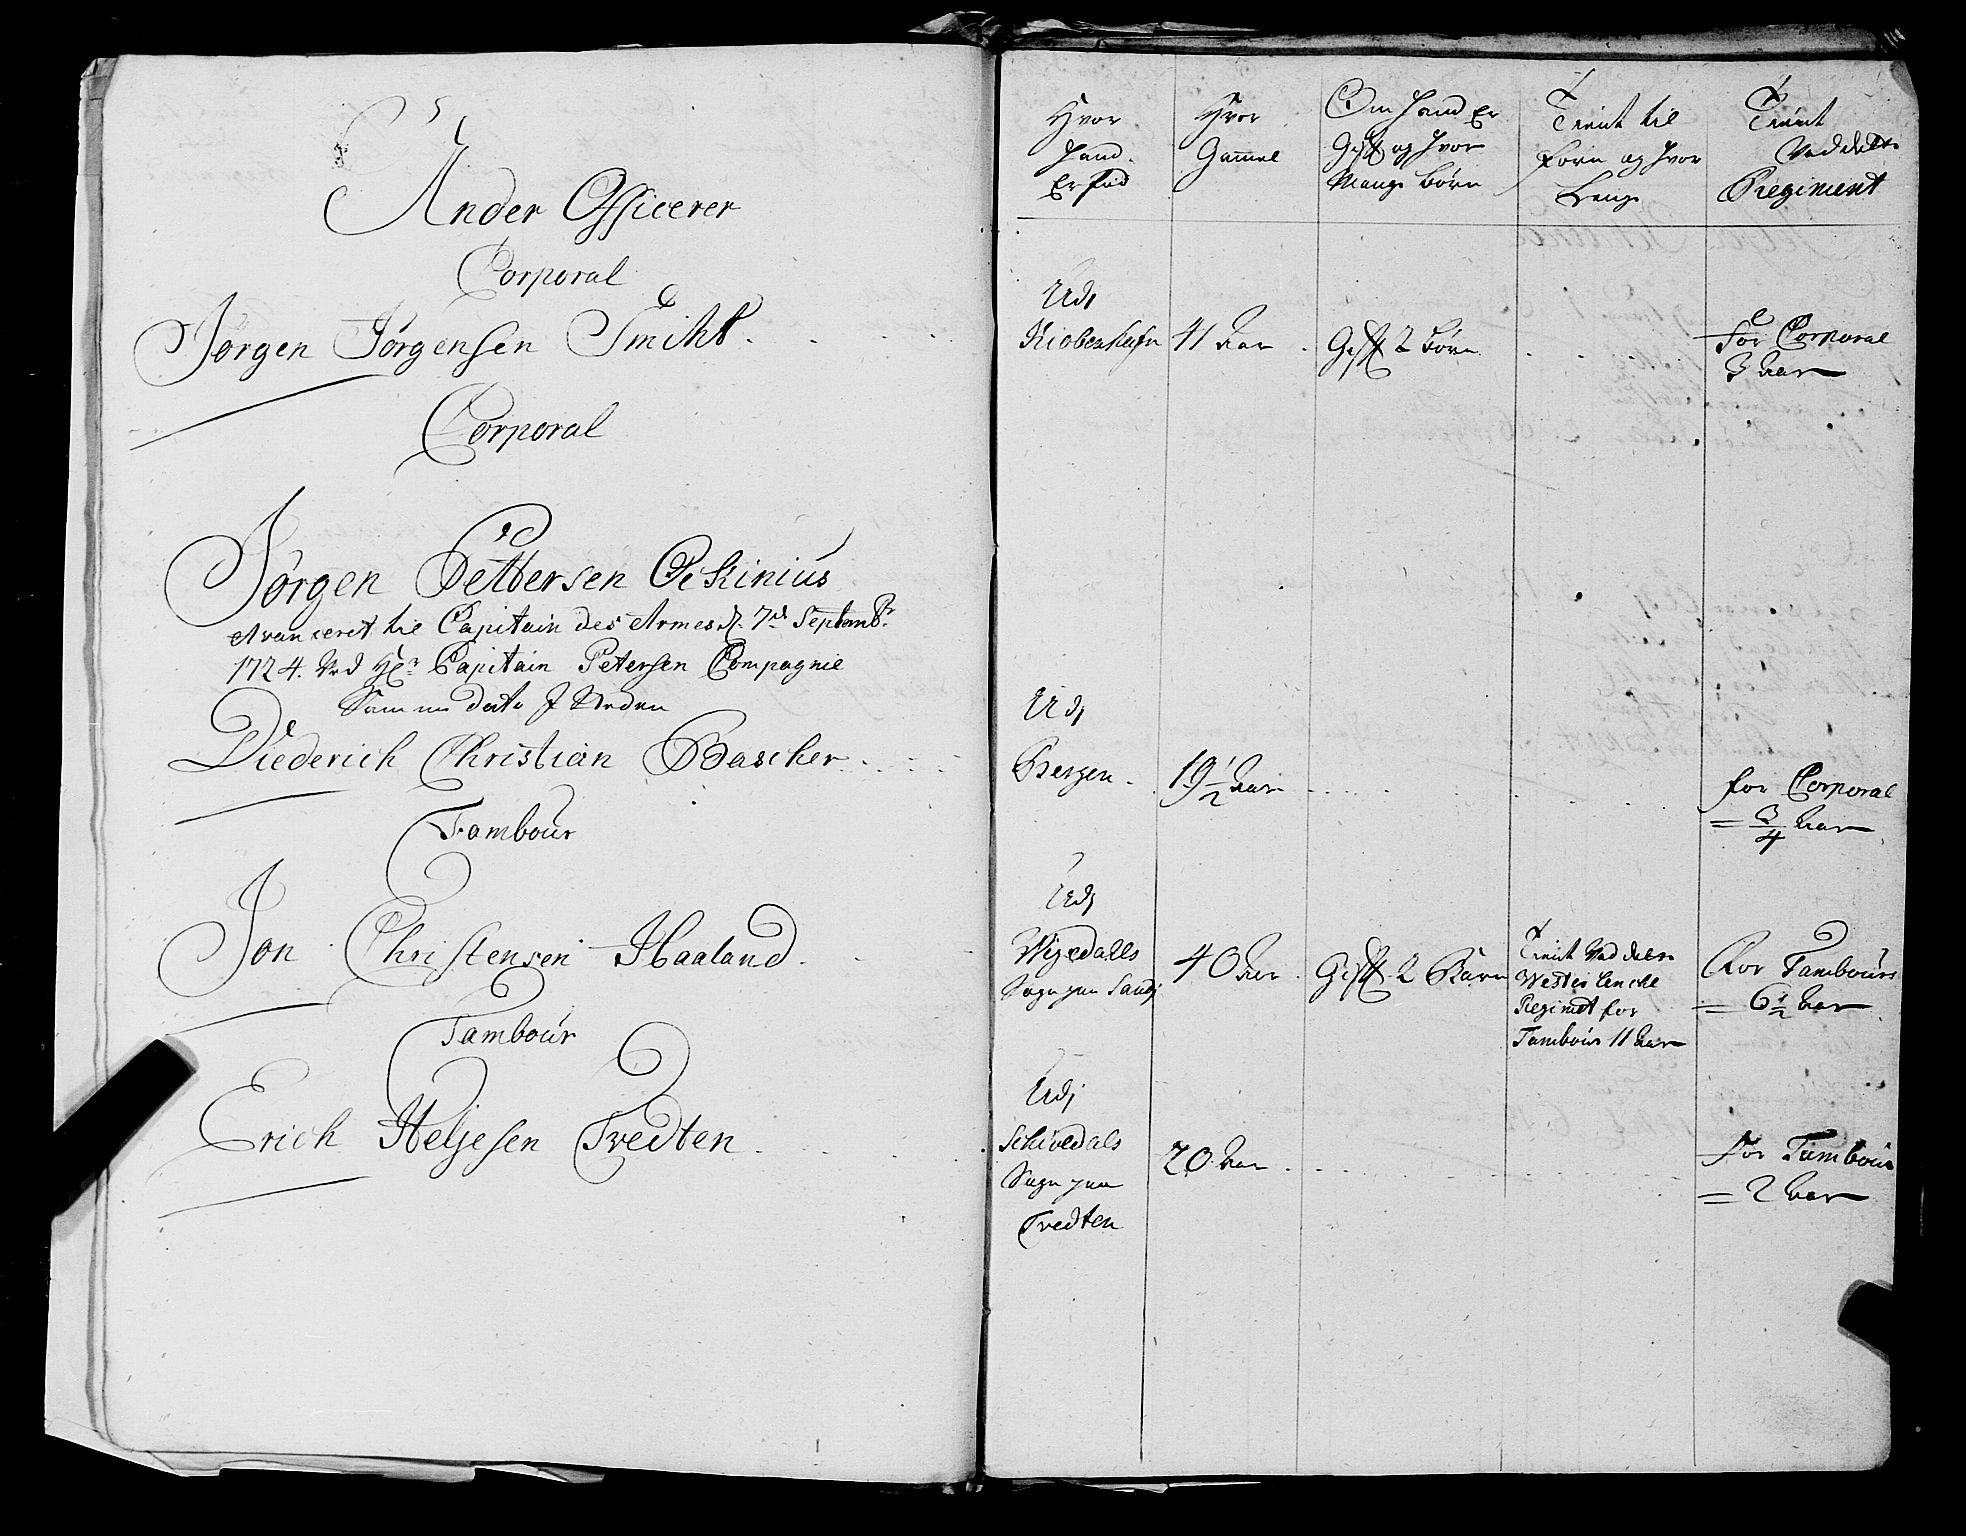 Under Officerer
Corporal
Jørgen Jørgensen Smiht
Corporal
Jørgen Pettersen Eckinius
Avanceret til Capitain des Armes d. 7de Septembr
1724. Ved Hr. Capitain Petersen Compagnie
Samme dato J Steden
Diederich Christian Bascher
Tambour
Jon Christensen Haaland
Tambour
Erich Heljesen Tvedten
Hvor
Hand
Er fød
Hvor
Gammel
Om Hand Er
Gift og Hvor
Mange børn
Tient til
forn og Hvor
Lenge
Tient
Ved dette
Regiment
Udj
Kiobenhafn
41 Aar
Gift 2 børn
For Corporal
3 Aar
Udj
Bergen
19 1/2 Aar
for Corporal
= 3/4 Aar
Udj
Wigedalls
Sogn paa Sandj
40 Aar
Gift 2 Børn
Tient Ved dette
Westerlenche
Regimdt for
Tambour 11 Aar
For Tambour
= 6 1/2 Aar
Udj
Schivedals
Sogn paa
Tvedten
20 Aar
For Tambour
= 2 Aar